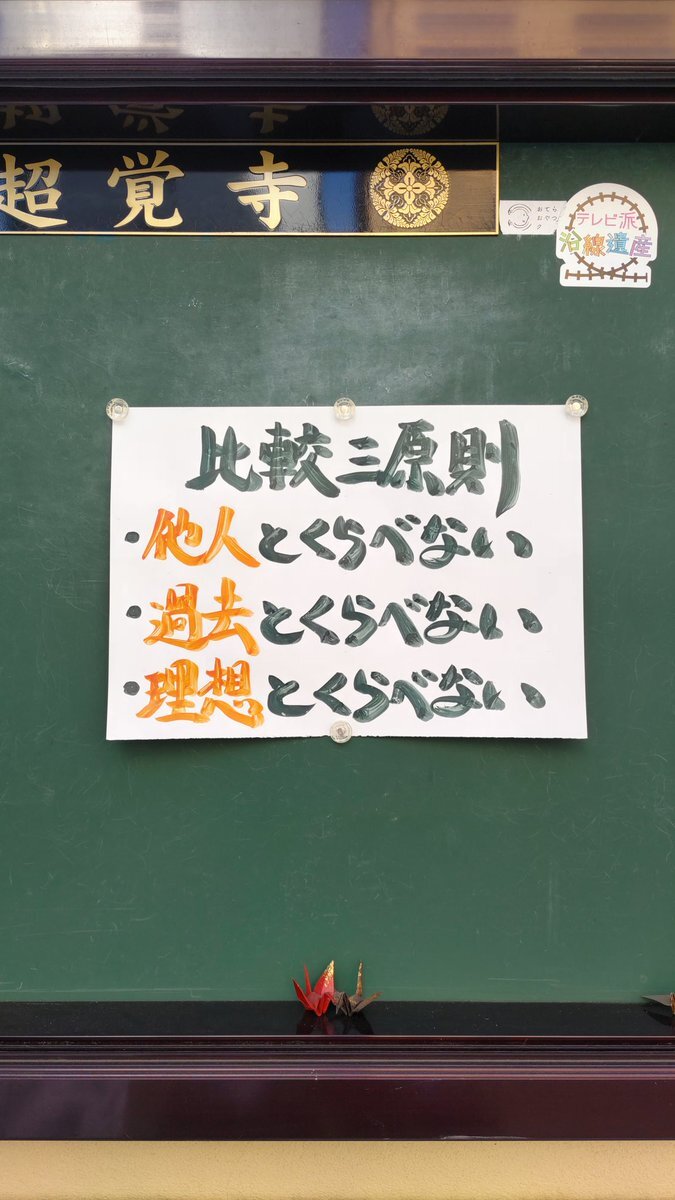 超覚寺
おてら
おやつ
ク
テレビ派
沿線遺産
比較三原則
・他人とくらべない
・過去とくらべない
・理想とくらべない